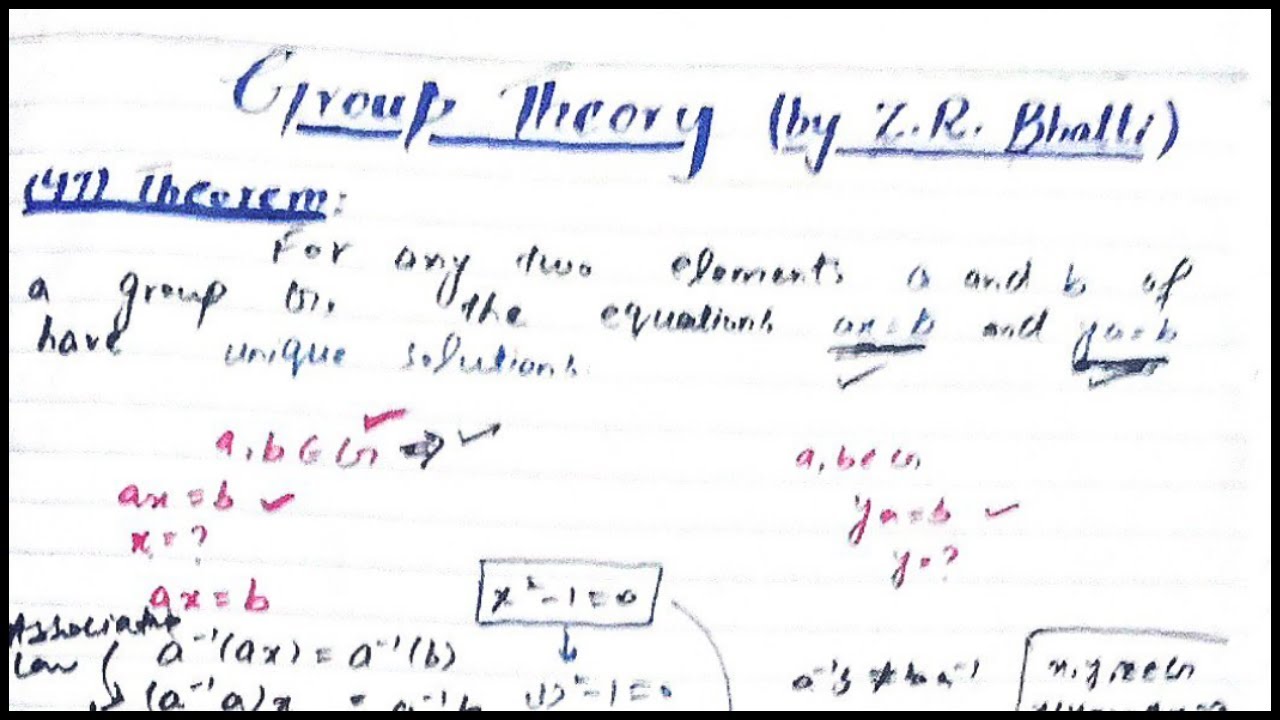 Group Theory (by Z.R. Bhatti)
(47) Theorem:
For any two elements a and b of
a group G, the equations ax=b and ya=b
have unique solutions.
a, b ∈ G ⇒
ax = b
x = ?
ax = b
a, b ∈ G
ya = b
y = ?
x² - 1 = 0
Associative
Law
a⁻¹(ax) = a⁻¹(b)
(a⁻¹a)x = a⁻¹b
(1)² - 1 = 0
a⁻¹b ≠ ba⁻¹